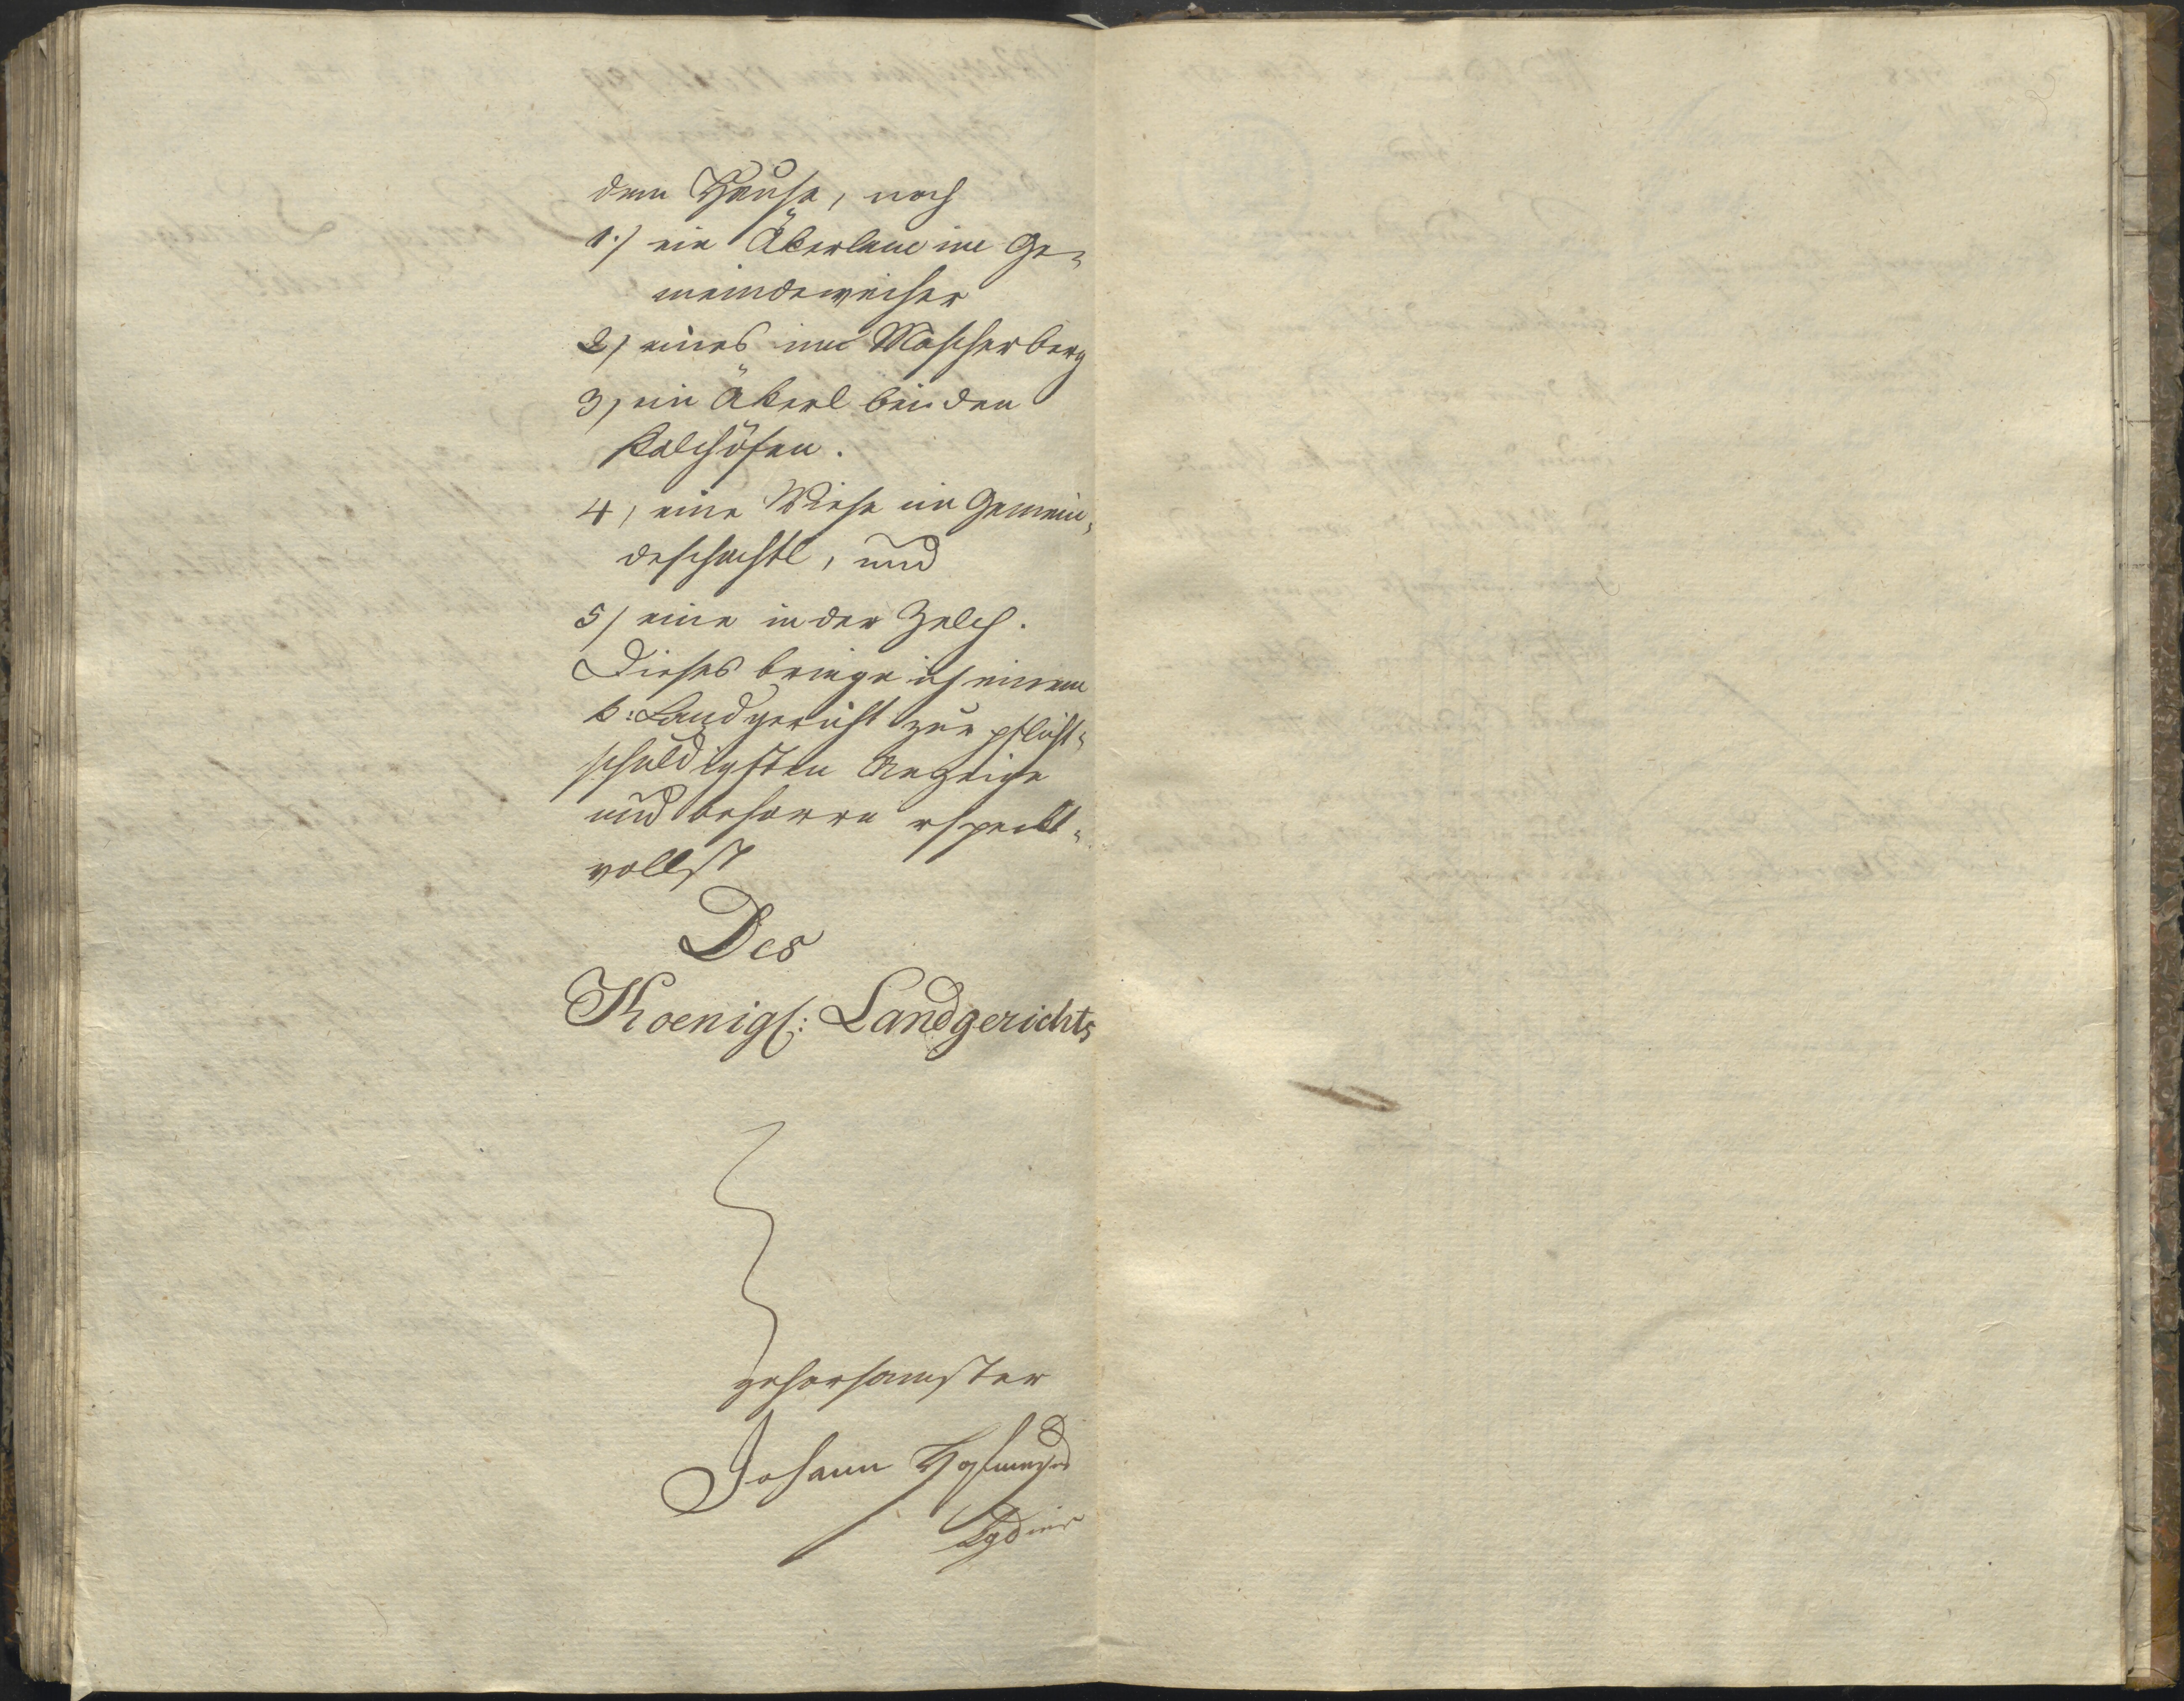 dem Hause, noch
1.) ein Äkerlane im Ge-
meindeweiher
2) eines im Mascherberg
3, ein Äkerl bei den
Kalchöfen.
4, eine Wiese im Gemein-
deschachtl, und
5) eine in der Zelch.
Dieses bringe ich einem
k: Landgericht zur pflicht-
schuldigsten Anzeige
und beharre respekt-
vollst
Des
Koenigl: Landgerichts
gehorsamster
Johann Hofmayr